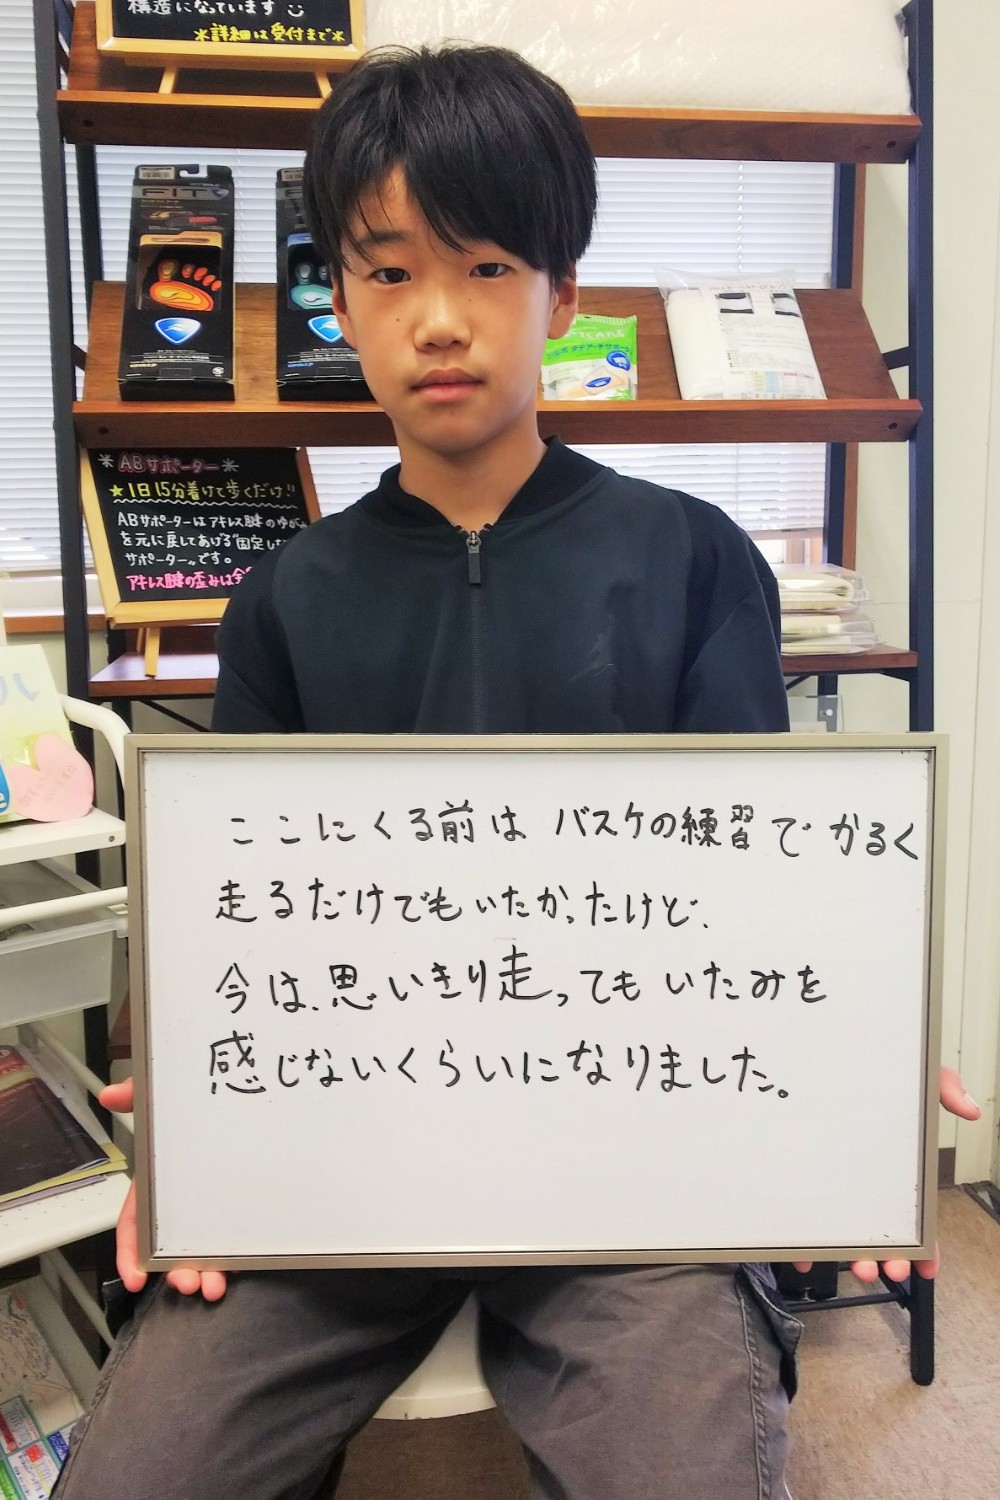 構造になっています
*詳細は受付まで*
FIT
*ABサポーター*
★1日15分着けて歩くだけ!!
ABサポーターはアキレス腱のゆがみ
を元に戻してあげる"固定し
サポーター"です。
アキレス腱の歪みは全
ここにくる前は バスケの練習で かるく
走るだけでもいたかったけど、
今は、思いきり走ってもいたみを
感じないくらいになりました。